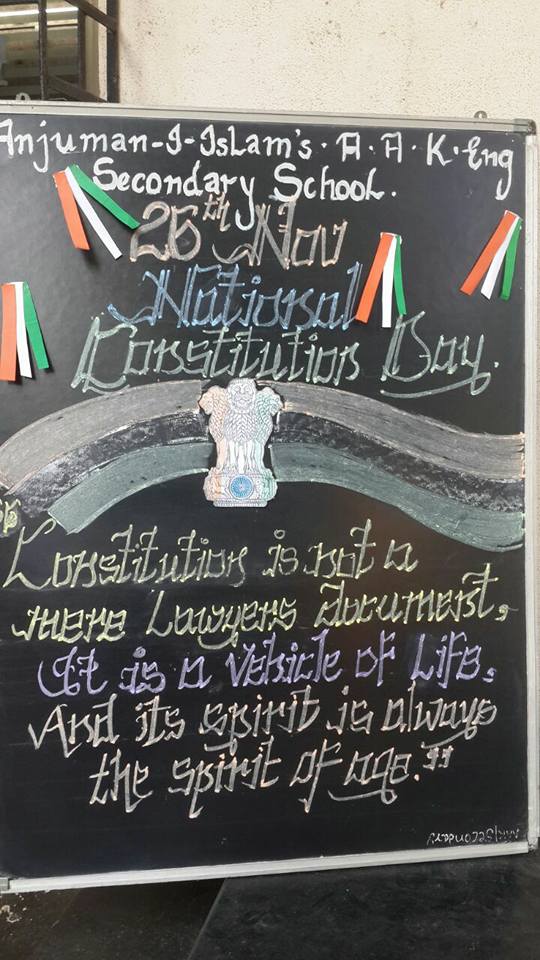 Anjuman-I-Islam's. A. A. K. Eng
Secondary School.
26th Nov
National
Constitution Day.
"Constitution is not a
mere Lawyers document,
It is a vehicle of Life,
And its spirit is always
the spirit of age."